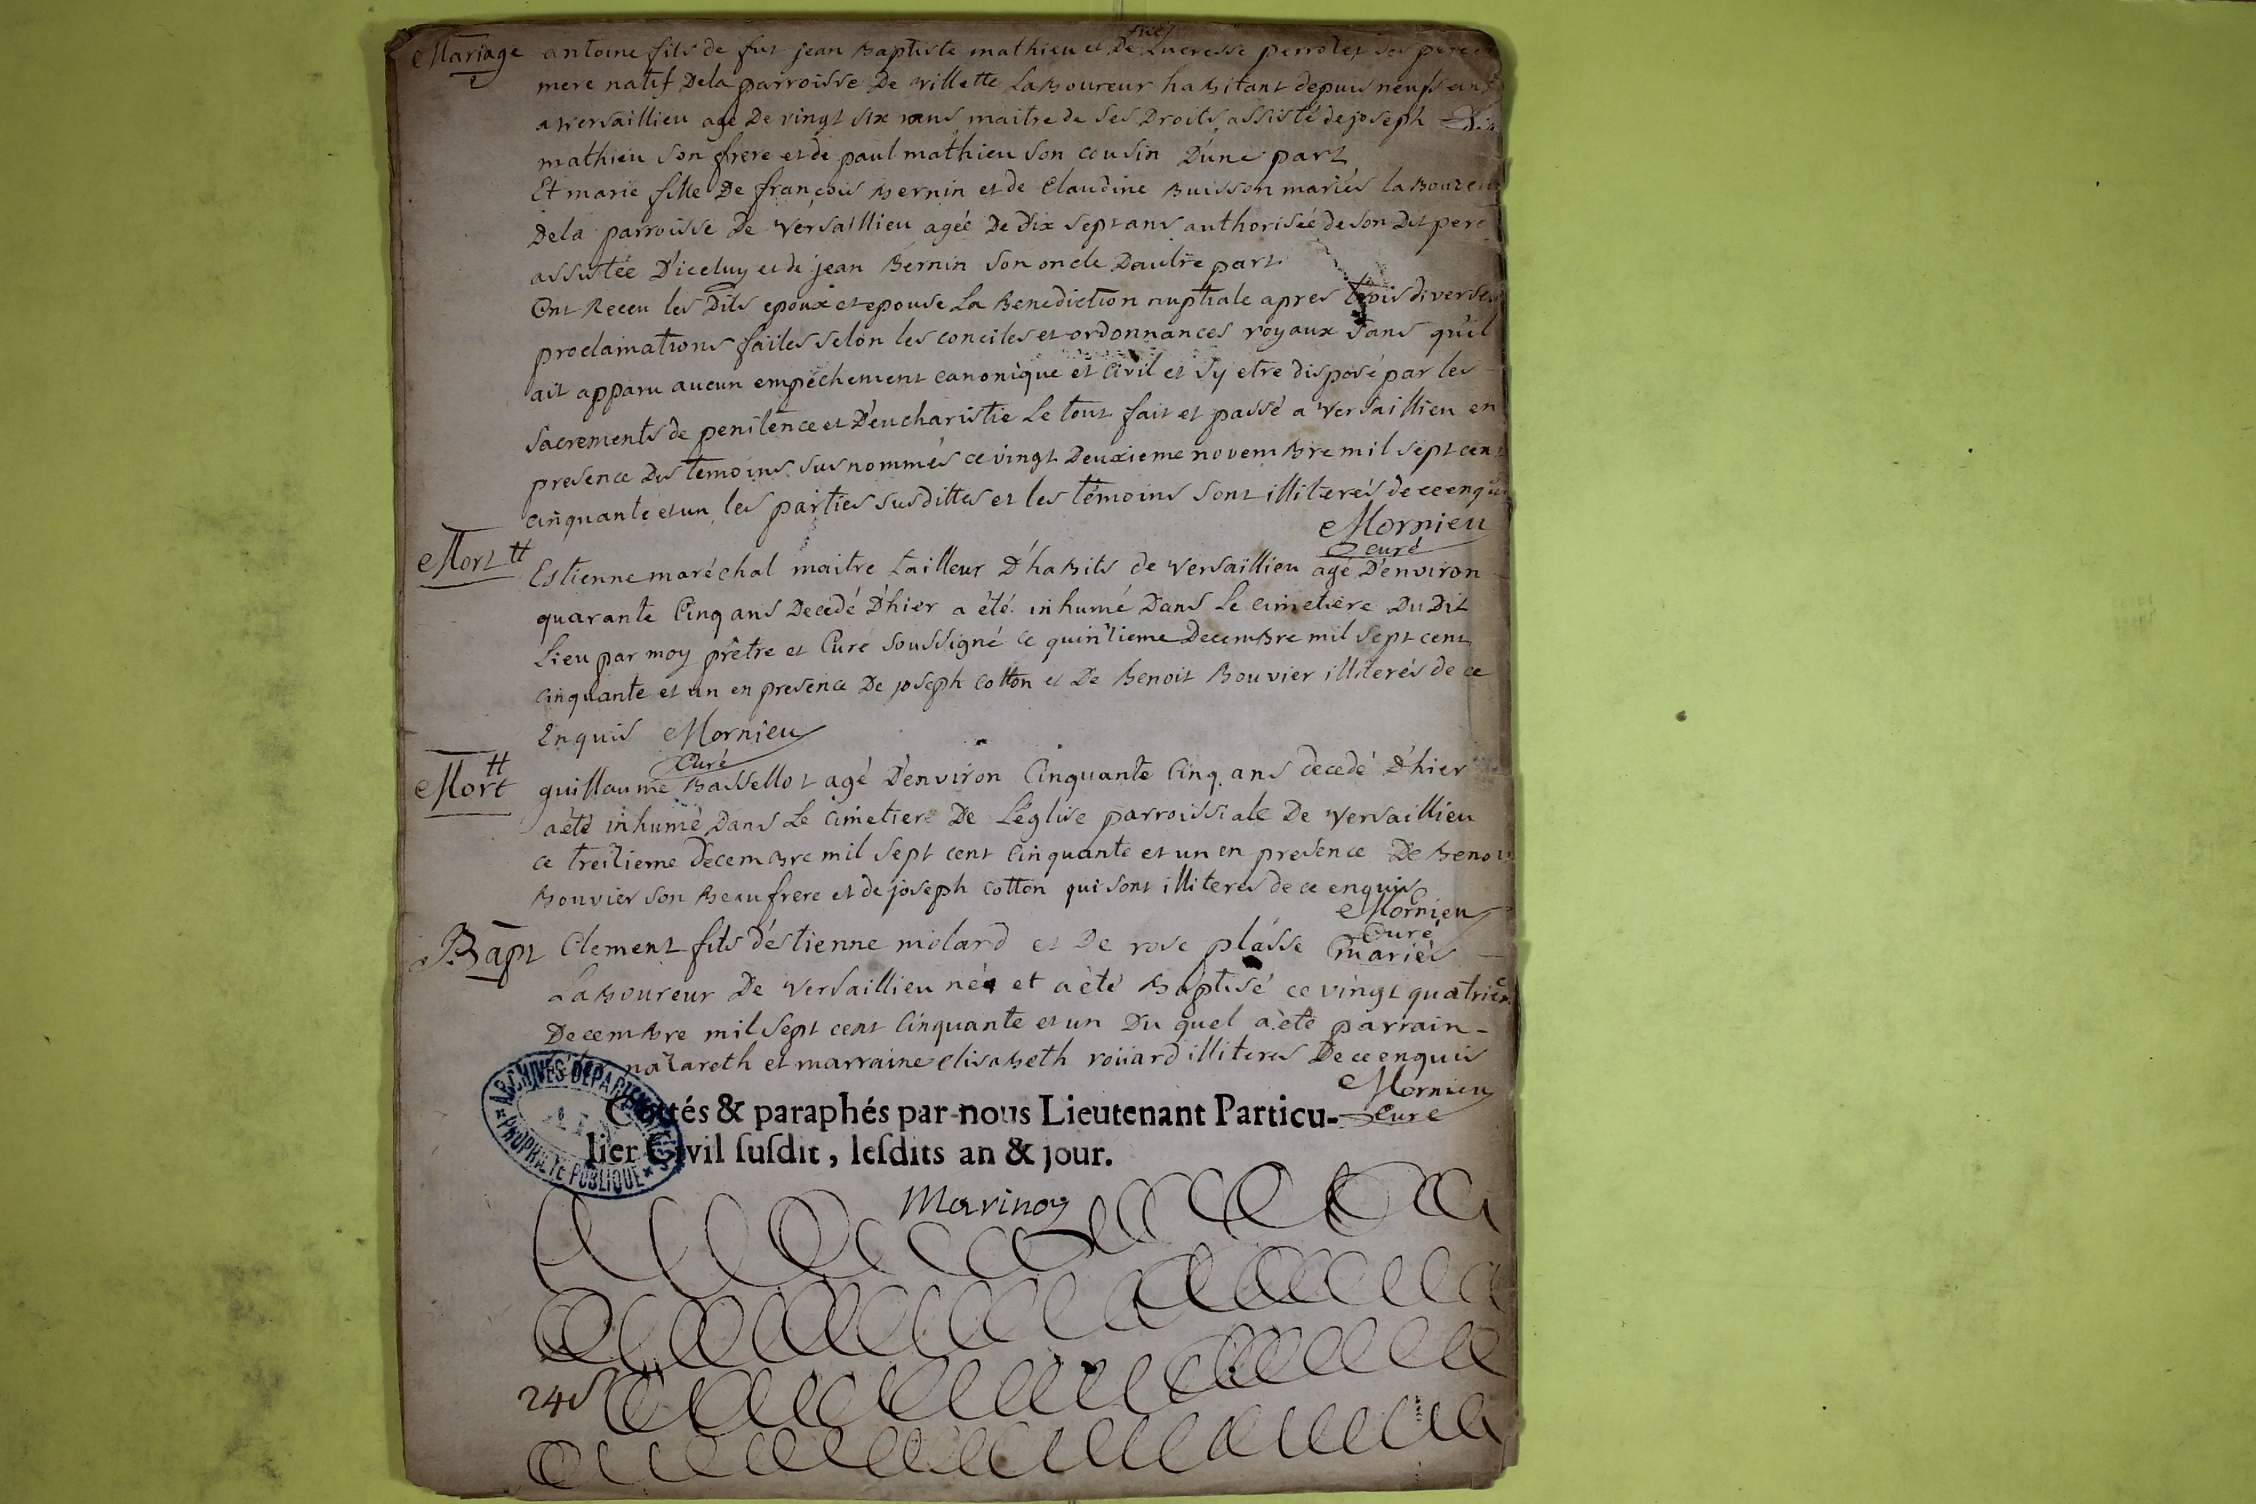 Mariage antoine fils de fut jean Baptiste mathieu et De Lucresse perrolet ses pere et
mere natif Dela parroisse De villette LaBoureur haBitant depuis neufs ans
a versaillieu agé De vingt six ans maitre de ses Droits assisté de joseph
mathieu son frere et de paul mathieu son cousin D'une part
Et marie fille De francois Bernin et de Claudine Buisson mariés laBoureur
Dela parroisse De versaillieu ageé De Dix sept ans authoriseé de son Dit pere
assistée D'iceluy et de jean Bernin son oncle Dautre part
Ont Receu les Dits epoux et epouse La Benediction nuptiale apres trois diverses
proclamations faites selon les conciles et ordonnances royaux sans qu'il
ait apparu aucun empêchement canonique et Civil et s'y etre disposé par les
sacrements de penitence et D'eucharistie Le tout fait et passé a versaillieu en
presence Des temoins susnommés ce vingt Deuxieme novemBre mil sept cent
cinquante et un les parties susdittes et les témoins sont illiterés de ce enquis
Mornieu
curé
Mortt Estienne maréchal maitre tailleur D'haBits de versaillieu agé D'environ
quarante Cinq ans Decedé D'hier a été inhumé Dans Le cimetiere Du Dit
Lieu par moy prêtre et Curé soussigné ce quinzieme DecemBre mil sept cent
cinquante et un en presence De joseph cotton et De Benoit Bouvier illiterés de ce
Enquis Mornieu
Curé
Mortt guillaume Bassellot agé D'environ Cinquante Cinq ans decedé D'hier
a été inhumé Dans Le Cimetiere De L'eglise parroissiale De versaillieu
ce treizieme decemBre mil sept cent Cinquante et un en presence De Benoit
Bouvier son Beaufrere et de joseph cotton qui sont illiteres de ce enquis
Mornieu
Curé
Bapt Clement fils d'estienne molard et De rose plasse mariés
LaBoureur De versaillieu né et a été Baptisé ce vingt quatrieme
DecemBre mil sept cent Cinquante et un Du quel a été parrain
nazareth et marraine elisaBeth roüard illiteres De ce enquis
Mornieu
Curé
ARCHIVES DÉPARTEMENTALES
PROPRIÉTÉ PUBLIQUE
Cottés & paraphés par nous Lieutenant Particu-
lier Civil ſuſdit, leſdits an & jour.
Marinoy